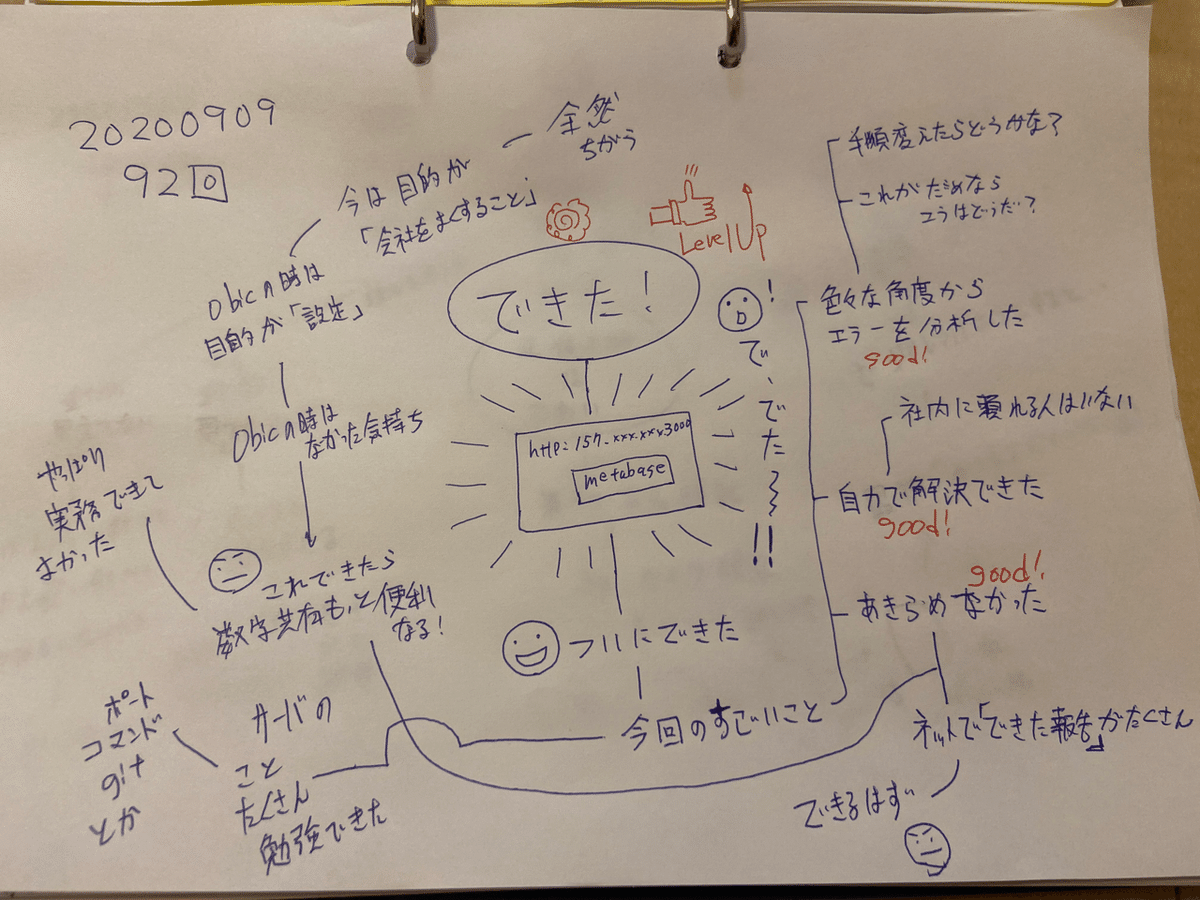 20200909
92回
全然
ちがう
今は目的が
「会社をよくすること」
Obicの時は
目的が「設定」
Obicの時は
なかった気持ち
やっぱり
実務できて
よかった
これできたら
数字共有もっと便利
なる!
Level Up
できた!
http:157.xxx.xxx3000
metabase
で、でた~~!!
!
ついにできた
今回のすごいこと
手順変えたらどうかな?
これがだめなら
こうはどうだ?
色々な角度から
エラーを分析した
good!
社内に頼れる人はいない
自力で解決できた
good!
good!
あきらめなかった
ネットで「できた報告」がたくさん
できるはず
サーバの
こと
たくさん
勉強できた
ポート
コマンド
git
とか